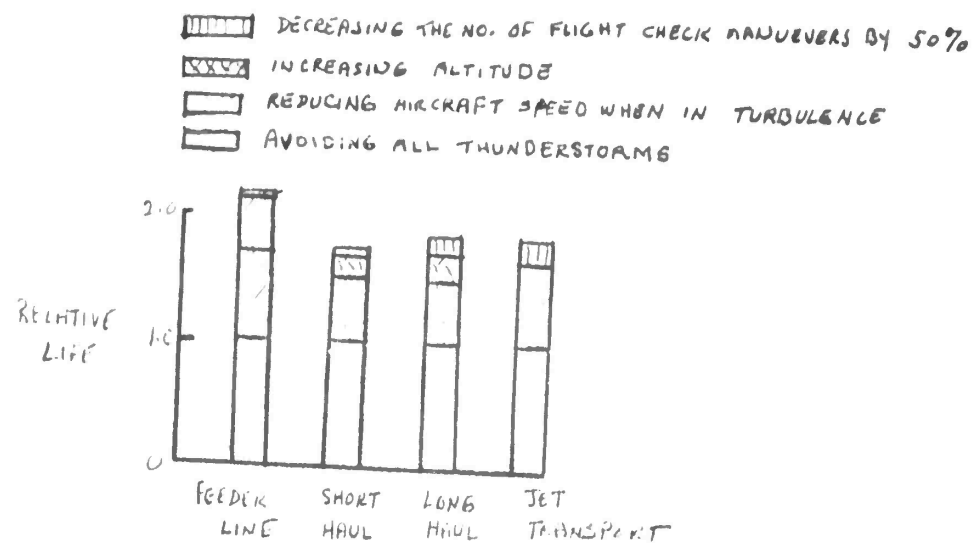 DECREASING THE NO. OF FLIGHT CHECK MANUEVERS BY 50%
INCREASING ALTITUDE
REDUCING AIRCRAFT SPEED WHEN IN TURBULENCE
AVOIDING ALL THUNDERSTORMS
2.0
RELATIVE
LIFE
1.0
0
FEEDER
LINE
SHORT
HAUL
LONG
HAUL
JET
TRANSPORT